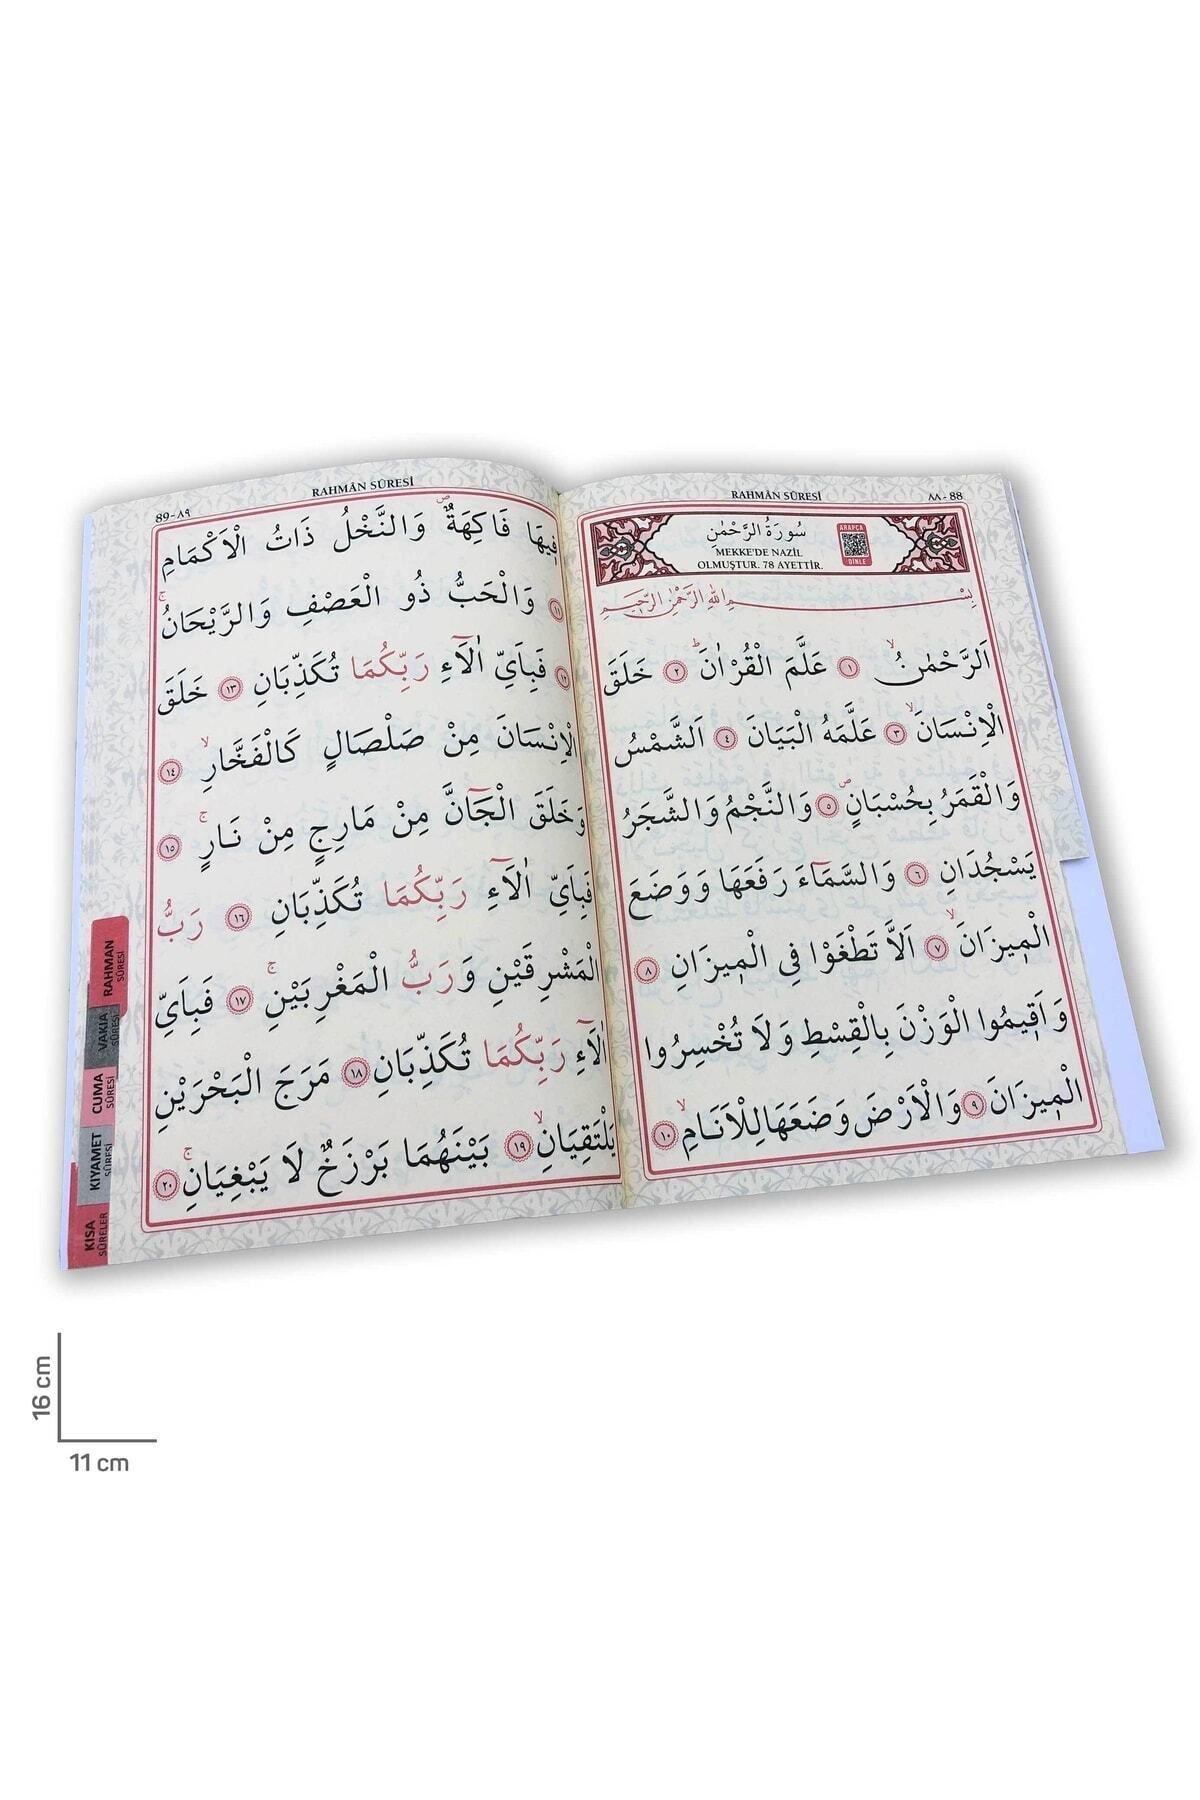 RAHMÂN SÛRESİ
٨٨-88
سُورَةُ الرَّحْمٰنِ
MEKKE'DE NAZİL
OLMUŞTUR. 78 AYETTİR.
ARAPÇA
DİNLE
بِسْمِ اللهِ الرَّحْمٰنِ الرَّحِيمِ
اَلرَّحْمٰنُۙ ﴿١﴾ عَلَّمَ الْقُرْاٰنَۜ ﴿٢﴾ خَلَقَ
الْاِنْسَانَۙ ﴿٣﴾ عَلَّمَهُ الْبَيَانَ ﴿٤﴾ اَلشَّمْسُ
وَالْقَمَرُ بِحُسْبَانٍۖ ﴿٥﴾ وَالنَّجْمُ وَالشَّجَرُ
يَسْجُدَانِ ﴿٦﴾ وَالسَّمَٓاءَ رَفَعَهَا وَوَضَعَ
الْم۪يزَانَۙ ﴿٧﴾ اَلَّا تَطْغَوْا فِي الْم۪يزَانِ ﴿٨﴾
وَاَق۪يمُوا الْوَزْنَ بِالْقِسْطِ وَلَا تُخْسِرُوا
الْم۪يزَانَ ﴿٩﴾ وَالْاَرْضَ وَضَعَهَا لِلْاَنَامِۙ ﴿١٠﴾
RAHMÂN SÛRESİ
89-٨٩
ف۪يهَا فَاكِهَةٌۖ وَالنَّخْلُ ذَاتُ الْاَكْمَامِ
﴿١١﴾ وَالْحَبُّ ذُو الْعَصْفِ وَالرَّيْحَانُۚ
﴿١٢﴾ فَبِاَيِّ اٰلَٓاءِ رَبِّكُمَا تُكَذِّبَانِ ﴿١٣﴾ خَلَقَ
الْاِنْسَانَ مِنْ صَلْصَالٍ كَالْفَخَّارِۙ ﴿١٤﴾
وَخَلَقَ الْجَٓانَّ مِنْ مَارِجٍ مِنْ نَارٍۚ ﴿١٥﴾
فَبِاَيِّ اٰلَٓاءِ رَبِّكُمَا تُكَذِّبَانِ ﴿١٦﴾ رَبُّ
الْمَشْرِقَيْنِ وَرَبُّ الْمَغْرِبَيْنِۚ ﴿١٧﴾ فَبِاَيِّ
اٰلَٓاءِ رَبِّكُمَا تُكَذِّبَانِ ﴿١٨﴾ مَرَجَ الْبَحْرَيْنِ
يَلْتَقِيَانِۙ ﴿١٩﴾ بَيْنَهُمَا بَرْزَخٌ لَا يَبْغِيَانِۚ ﴿٢٠﴾
RAHMAN
SÛRESİ
VAKIA
SÛRESİ
CUMA
SÛRESİ
KIYAMET
SÛRESİ
KISA
SÛRELER
16 cm
11 cm